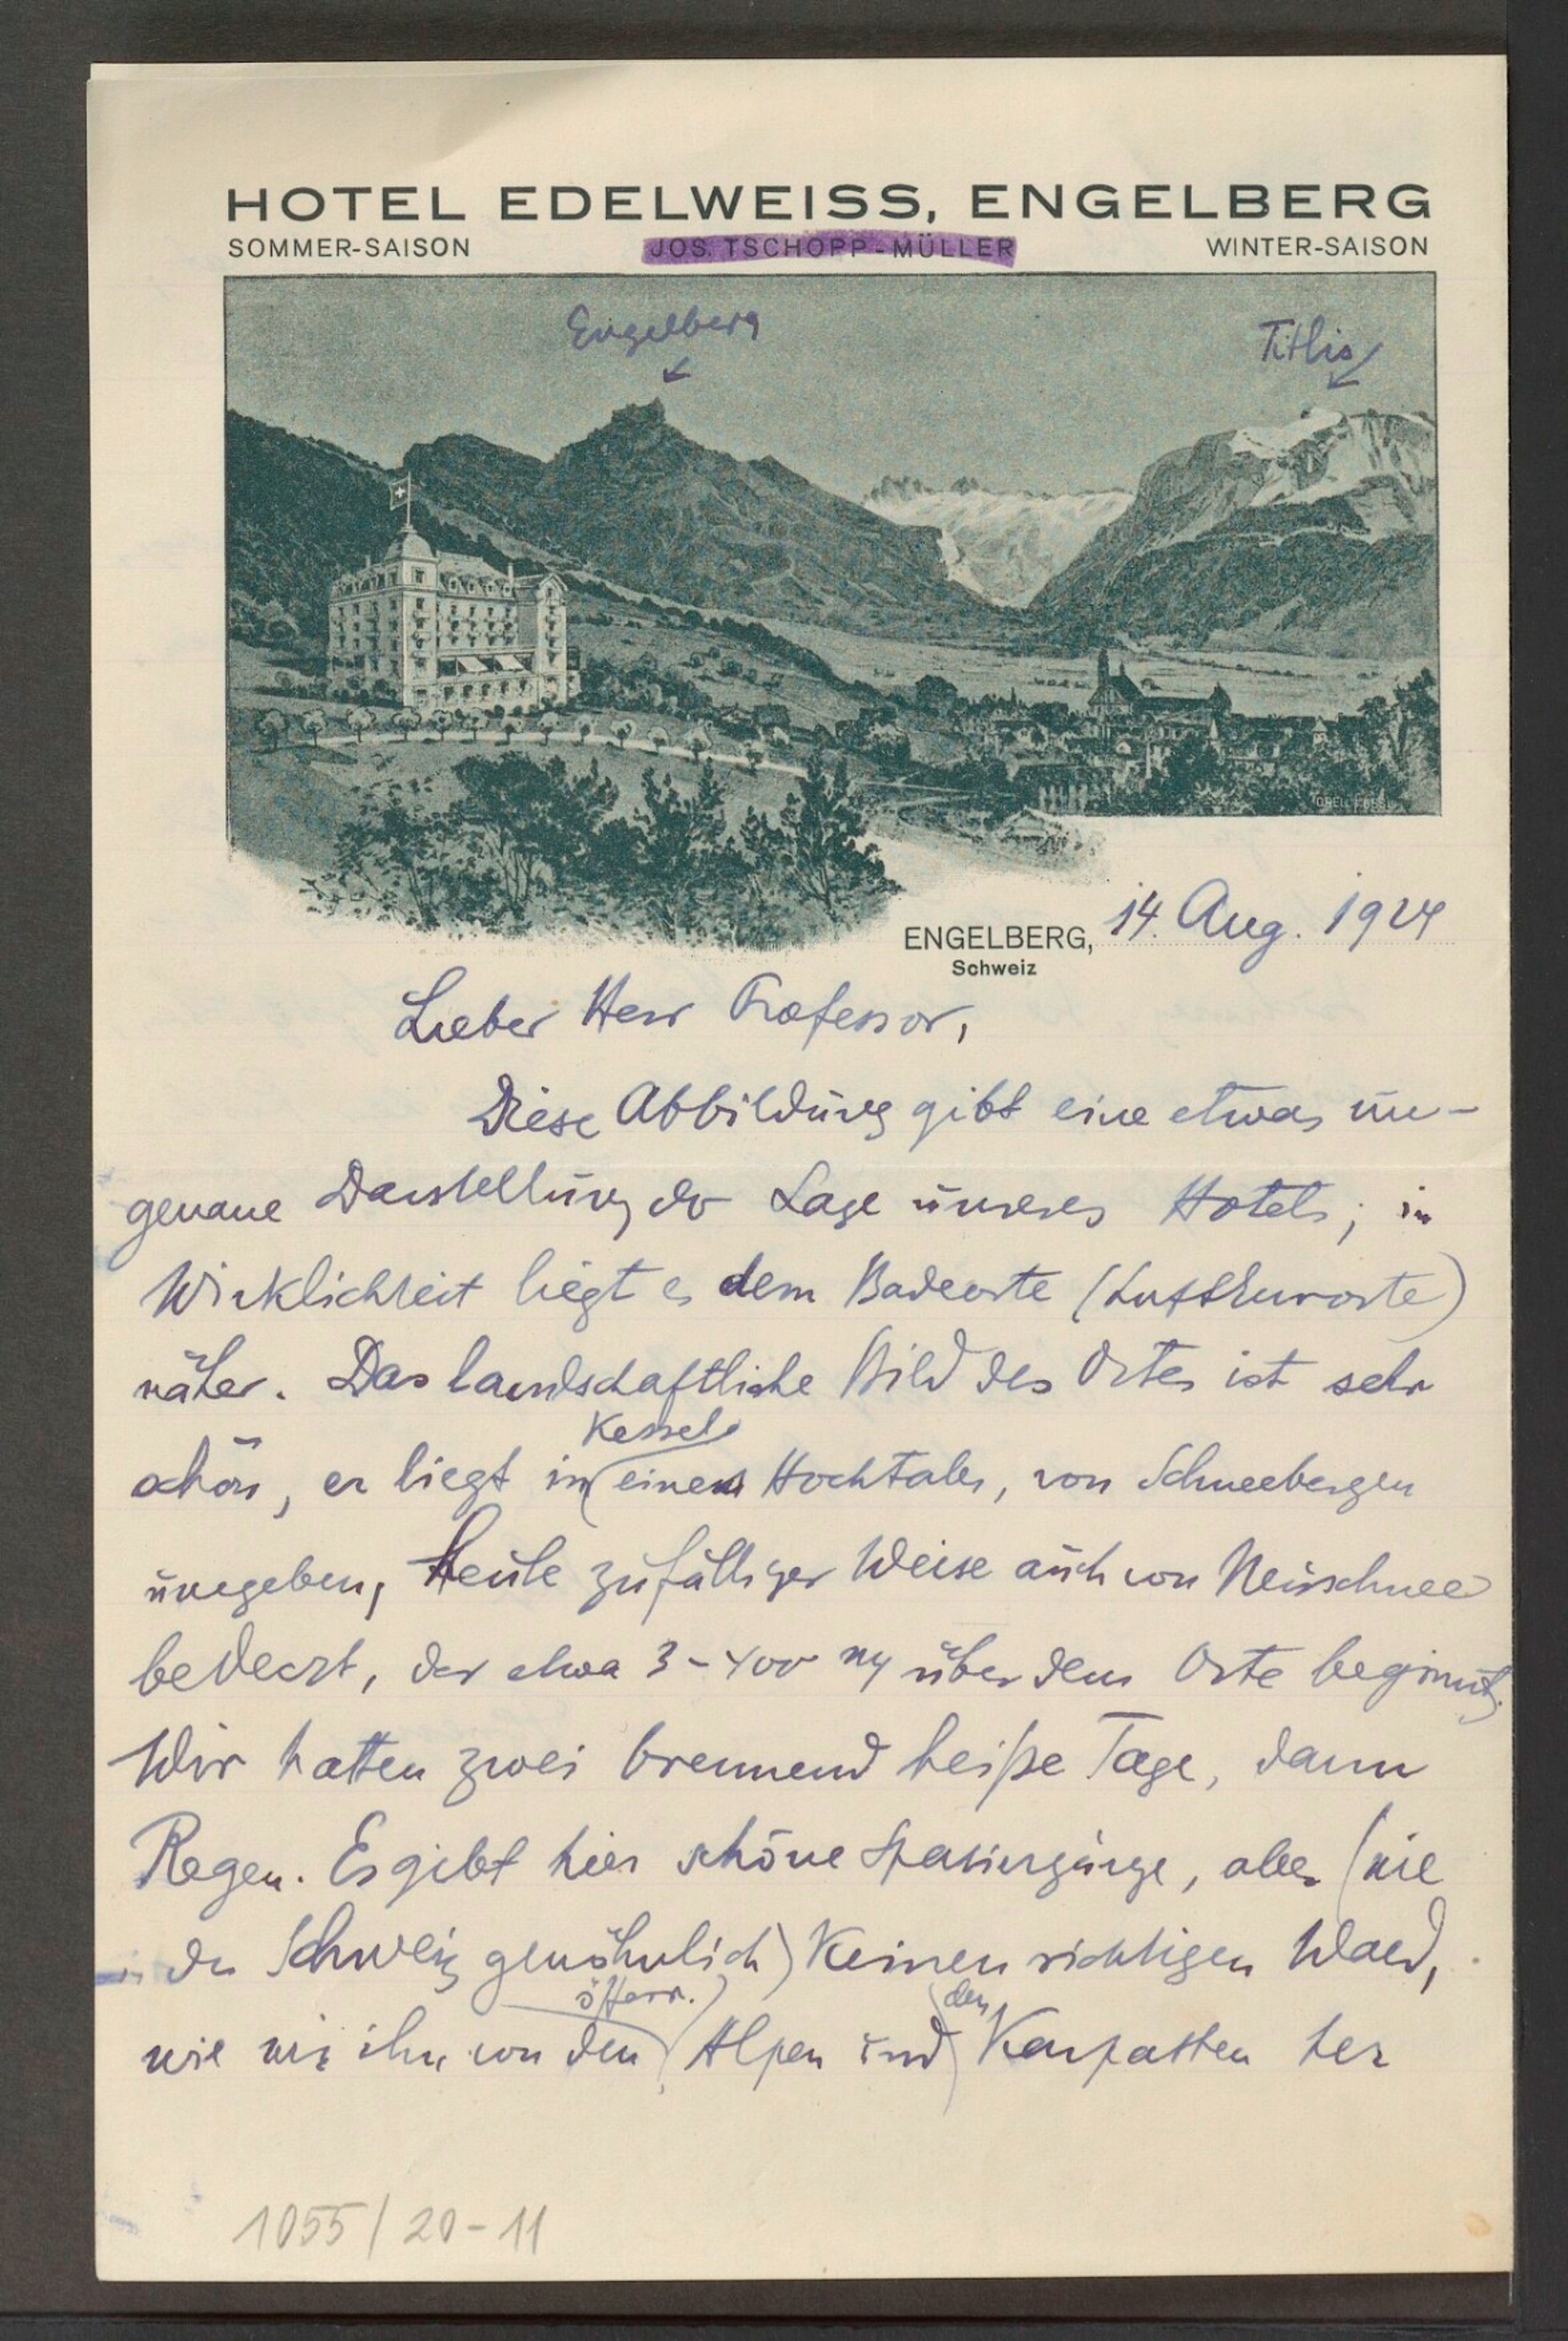 HOTEL EDELWEISS, ENGELBERG
SOMMER-SAISON JOS. TSCHOPP-MÜLLER WINTER-SAISON
Engelberg
Titlis
ORELL FÜSSLI
ENGELBERG, 14. Aug. 1924
Schweiz
Lieber Herr Professor,
Diese Abbildung gibt eine etwas un-
genaue Darstellung der Lage unseres Hotels; in
Wirklichkeit liegt es dem Badeorte (Luftkurorte)
näher. Das landschaftliche Bild des Ortes ist sehr
Kessel
schön, er liegt im eines Hochtales, von Schneebergen
umgeben, heute zufälliger Weise auch von Neuschnee
bedeckt, der etwa 3-400 m über dem Orte beginnt.
Wir hatten zwei brennend heiße Tage, dann
Regen. Es gibt hier schöne Spaziergänge, aber (wie
in der Schweiz gewöhnlich) keinen richtigen Wald,
österr. den
wie wir ihn von den Alpen und Karpathen her
1055/20-11